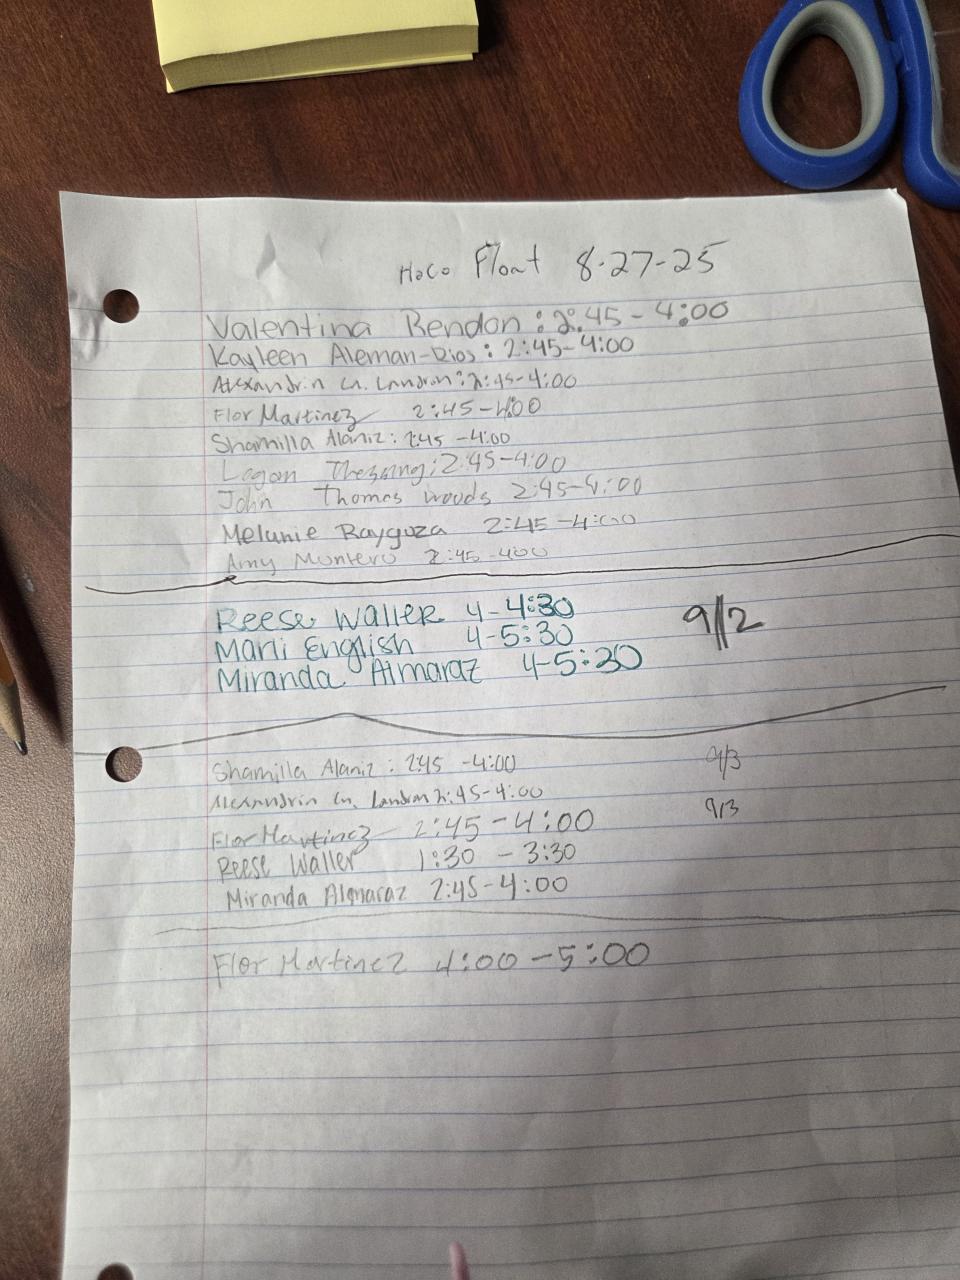 HoCo Float 8-27-25
Valentina Rendon : 2:45 - 4:00
Kayleen Aleman-Rios : 2:45-4:00
Landron : 2:45-4:00
Flor Martinez 2:45-4:00
Shamilla Alaniz : 2:45 -4:00
Logan : 2:45-4:00
John Thomas Woods 2:45-4:00
Melanie 2:45-4:00
Amy Montero 2:45-400
Reese Waller 4-4:30
9/2
Marli English 4-5:30
Miranda Almaraz 4-5:30
Shamilla Alaniz : 2:45 -4:00 9/3
Landron 2:45-4:00 9/3
Flor Martinez 2:45-4:00
Reese Waller 1:30 - 3:30
Miranda Almaraz 2:45-4:00
Flor Martinez 4:00 - 5:00